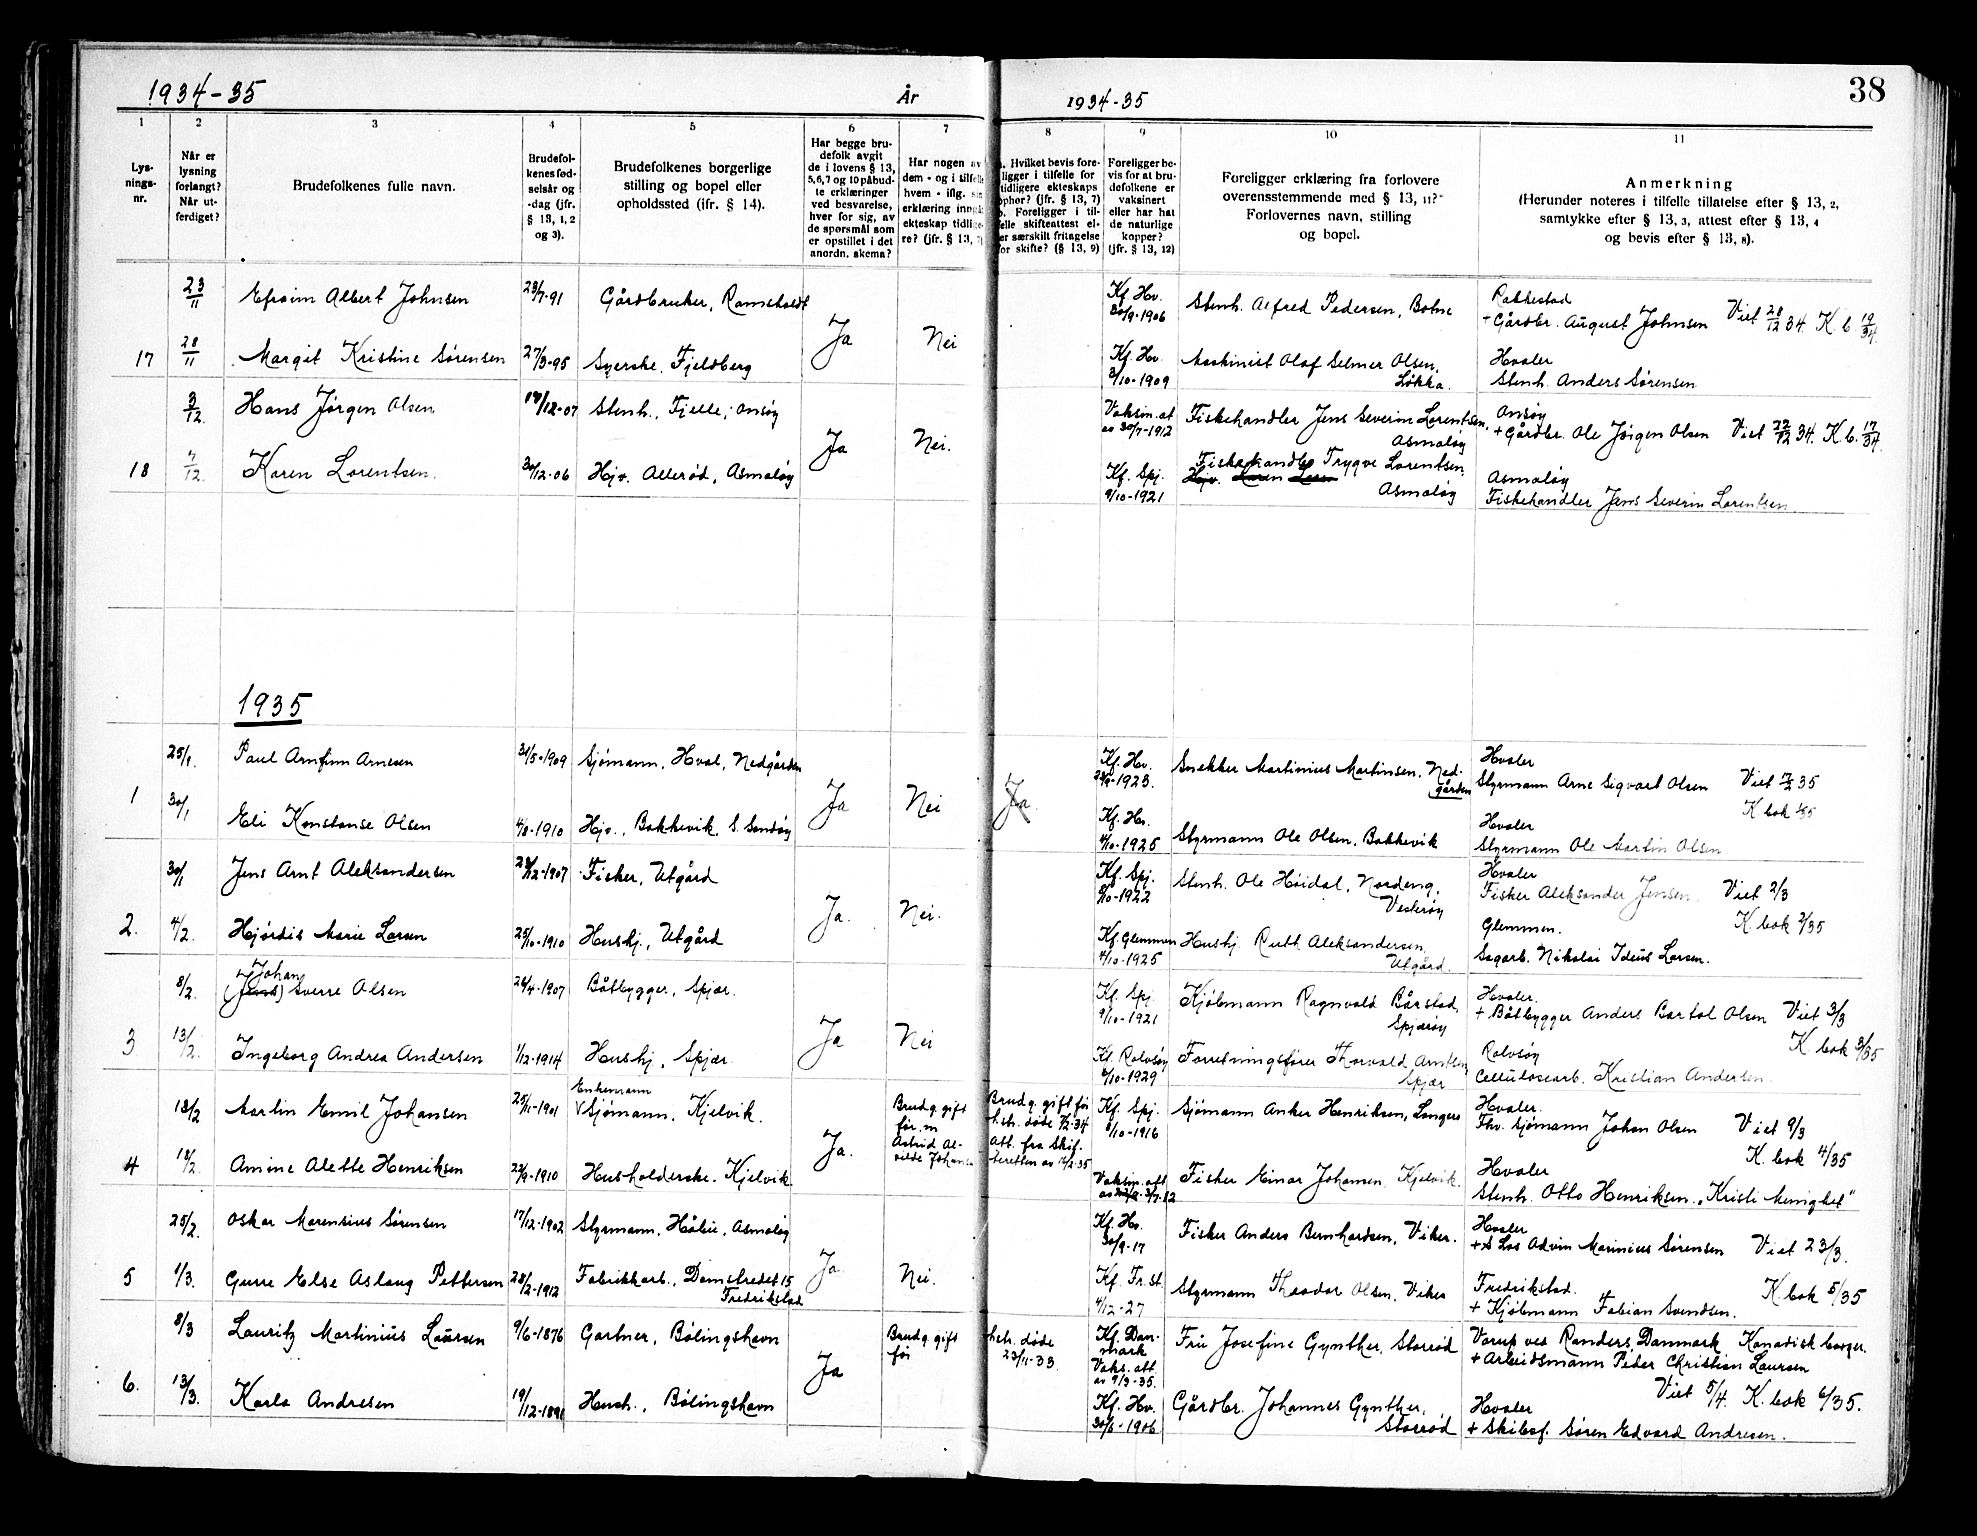 1934-35
År
1934-35
38
1
2
3
4
5
6
7
8
9
10
11
Lys-
nings-
nr.
Når er
lysning
forlangt?
Når ut-
ferdiget?
Brudefolkenes fulle navn.
Brudefol-
kenes fød-
selsår og
-dag (jfr.
§ 13, 1, 2
og 3).
Brudefolkenes borgerlige
stilling og bopel eller
opholdssted (ifr. § 14).
Har begge bru-
defolk avgit
de i lovens § 13,
5,6,7 og 10 påbud-
te erklæringer
ved besvarelse,
hver for sig, av
de spørsmål som
er opstillet i det
anordn. skema?
Har nogen av
dem - og i tilfelle
hvem - iflg. sin
erklæring inngå
ekteskap tidlige-
re? (jfr. § 13, 7)
Hvilket bevis fore-
ligger i tilfelle for
tidligere ekteskaps
ophør? (jfr. § 13, 7)
b. Foreligger i til-
felle skifteattest el-
er særskilt fritagelse
for skifte? (§ 13, 9)
Foreligger be-
vis for at bru-
defolkene er
vaksinert
eller har hat
de naturlige
kopper?
(jfr. § 13, 12)
Foreligger erklæring fra forlovere
overensstemmende med § 13, 11?
Forlovernes navn, stilling
og bopel.
Anmerkning
(Herunder noteres i tilfelle tillatelse efter § 13, 2,
samtykke efter § 13, 3, attest efter § 13, 4
og bevis efter § 13, 8).
23/11 Efraim Albert Johnsen 23/7-91 Gårdbruker, Ramsholdt Kf. Hv. 30/9-1906 Stenh. Alfred Pedersen, Botne Rakkestad
+ Gårdbr. August Johnsen Viet 28/12 34 K. b. 19/34.
Ja Nei
17 28/11 Margit Kristine Sørensen 27/3-95 Syerske. Fjeldberg Kf. Hv. 3/10-1909 Maskinist Olaf Selmer Olsen, Løkka. Hvaler
Stenh. Anders Sørensen
3/12. Hans Jørgen Olsen 17/12-07 Stenh., Fjelle, Onsøy Vaksin.at av 30/7-1912 Fiskehandler Jens Severin Lorentsen, Asmaløy Onsøy
+ Gårdbr. Ole Jørgen Olsen Viet 22/12 34. K. b. 17/34.
Ja Nei.
18 7/12. Karen Lorentsen. 30/12-06 Hjv. Allerød, Asmaløy Kf. Spj. 9/10-1921 Fiskehandler Trygve Lorentsen, Asmaløy Asmaløy
Fiskehandler Jens Severin Lorentsen.
1935
25/1 Paul Arnfinn Arnesen 31/5-1909 Sjømann, Hval, Nedgården Kf. Hv. 1923. Snekker Martinius Martinsen, Ned-gården Hvaler
Styrmann Arne Sigvart Olsen Viet 35
1 Ja Nei Ja
30/1 Eli Konstanse Olsen 1910 Hjv., Bakkevik, S. Sandøy Kf. Hv. 4/10-1925 Styrmann Ole Olsen, Bakkevik Hvaler K bok 1/35
Styrmann Ole Martin Olsen
30/1 Jens Arnt Aleksandersen 12-1907 Fisker, Utgård Kf. Spj. 8/10-1922 Stenh. Ole Høidal, Nordeng, Vesterøy Hvaler
Fisker Aleksander Jensen. Viet 2/3
2. Ja. Nei.
4/2. Hjørdis Marie Larsen 25/10-1910 Hushj., Utgård Kf. Glemmen 4/10-1925 Hushj. Ruth Aleksandersen, Utgård. Glemmen. K. bok 2/35
Sagarb. Nikolai Ideus Larsen.
8/2. Johan (Jens) Sverre Olsen 24/4-1907 Båtbygger, Spjær. Kf. Spj. 9/10-1921 Kjøbmann Ragnvald Bårstad, Spjærøy Hvaler.
+ Båtbygger Anders Bartol Olsen Viet 3/3
3 Ja Nei
13/2. Ingeborg Andrea Andersen 1/12-1914 Hushj., Spjær. Kf. Rolvsøy 6/10-1929 Forretningsfører Thorvald Arntsen, Spjær Rolvsøy K bok 3/35
Cellulosearb. Kristian Andersen.
18/2 Martin Emil Johansen 25/11-1901 Enkemann Sjømann, Kjelvik. Brudg. gift før. m Astrid Al-vilde Johans Brudg. gift før h.tr. døde 7/2-34 att. fra Skif-teretten av 14/2-35 Kf. Spj. 8/10-1916 Sjømann Anker Henriksen, Langes Hvaler.
Fhv. Sjømann Johan Olsen Viet 9/3
Ja. K. bok 4/35
4 18/2. Amine Alette Henriksen 22/9-1910 Husholderske. Kjelvik. Vaksin. att av 3/7-12 Fisker Einar Johansen, Kjelvik. Hvaler
Stenh. Otto Henriksen. „Kristi Menighet"
25/2. Oskar Marensius Sørensen 17/12-1902 Styrmann, Håbu, Asmaløy Kf. Hv. 30/9-17 Fisker Anders Bernhardsen, Viker. Hvaler
+ Los Advin Marinius Sørensen Viet 23/3.
Ja Nei.
5 1/3. Gurre Else Aslaug Pettersen 28/2-1912 Fabrikkarb., Damstredet 15 Fredrikstad Kf. Fr.st. 4/12-27 Styrmann Theodor Olsen, Viker Fredrikstad. K. bok 5/35
+ Kjøbmann Fabian Svendsen.
8/3 Lauritz Martinius Laursen 9/6-1876 Gartner, Bølingshavn Brudg gift før h.tr. døde 23/11-33. Kf. Dan-mark Vaks. att. av 9/3-35. Fru Josefine Gynther, Storrød Vorup ved Randers, Danmark Kanadisk borger.
+ Arbeidsmann Peder Christian Laursen
Ja Viet 5/4. K. bok 6/35.
6. 13/3. Karla Andresen 19/12-1891 Hush., Bølingshavn Kf. Hv. 30/6-1906 Gårdbr. Johannes Gynther, Storrød Hvaler
+ Skibsf. Søren Edvard Andresen.